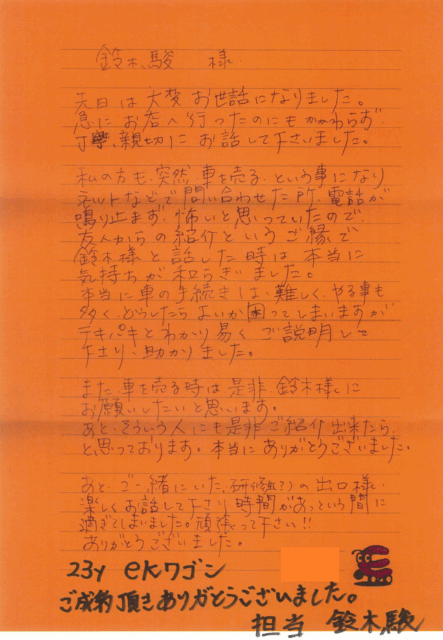 鈴木駿 様
先日は大変お世話になりました。
急にお店へ行ったのにもかかわらず、
丁寧、親切にお話して下さいました。
私の方も、突然車を売るという事になり
ネットなどで問い合わせた所、電話が
鳴り止まず、怖いと思っていたので、
友人からの紹介というご縁で
鈴木様と話した時は本当に
気持ちが和らぎました。
本当に車の手続きは、難しく、やる事も
多く、どうしたらよいか困ってしまいますが
テキパキとわかり易くご説明して
下さり、助かりました。
また車を売る時は是非鈴木様に
お願いしたいと思います。
あと、そういう人にも是非ご紹介出来たら、
と思っております。本当にありがとうございました。
あと、ご一緒にいた、研修(?)の出口様、
楽しくお話して下さり時間があっという間に
過ぎてしまいました。頑張って下さい!!
ありがとうございました。
23y eKワゴン
ご成約頂きありがとうございました。
担当 鈴木駿